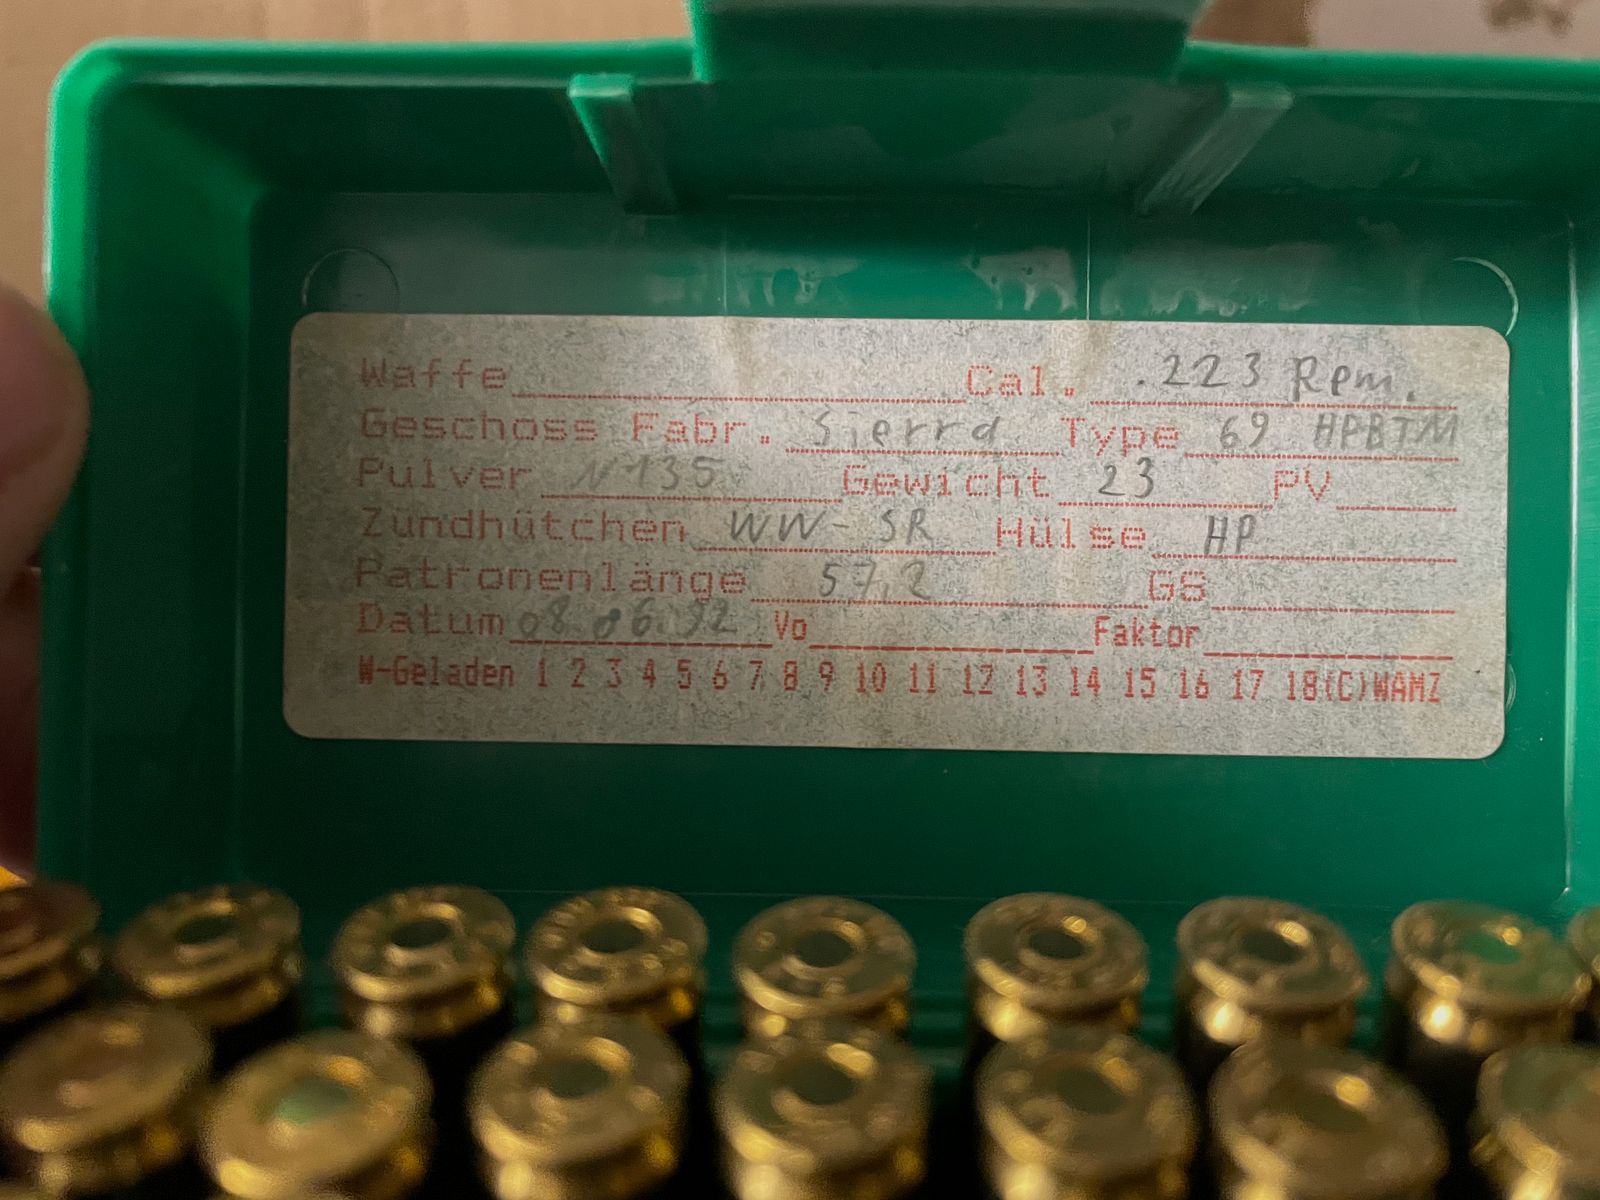 Waffe Cal. .223 Rem.
Geschoss Fabr. Sierra Type 69 HPBTM
Pulver N 135 Gewicht 23 PV
Zündhütchen WW-SR Hülse HP
Patronenlänge 57,2 GS
Datum 08.06.92 Vo Faktor
W-Geladen 1 2 3 4 5 6 7 8 9 10 11 12 13 14 15 16 17 18 (C) WAMZ